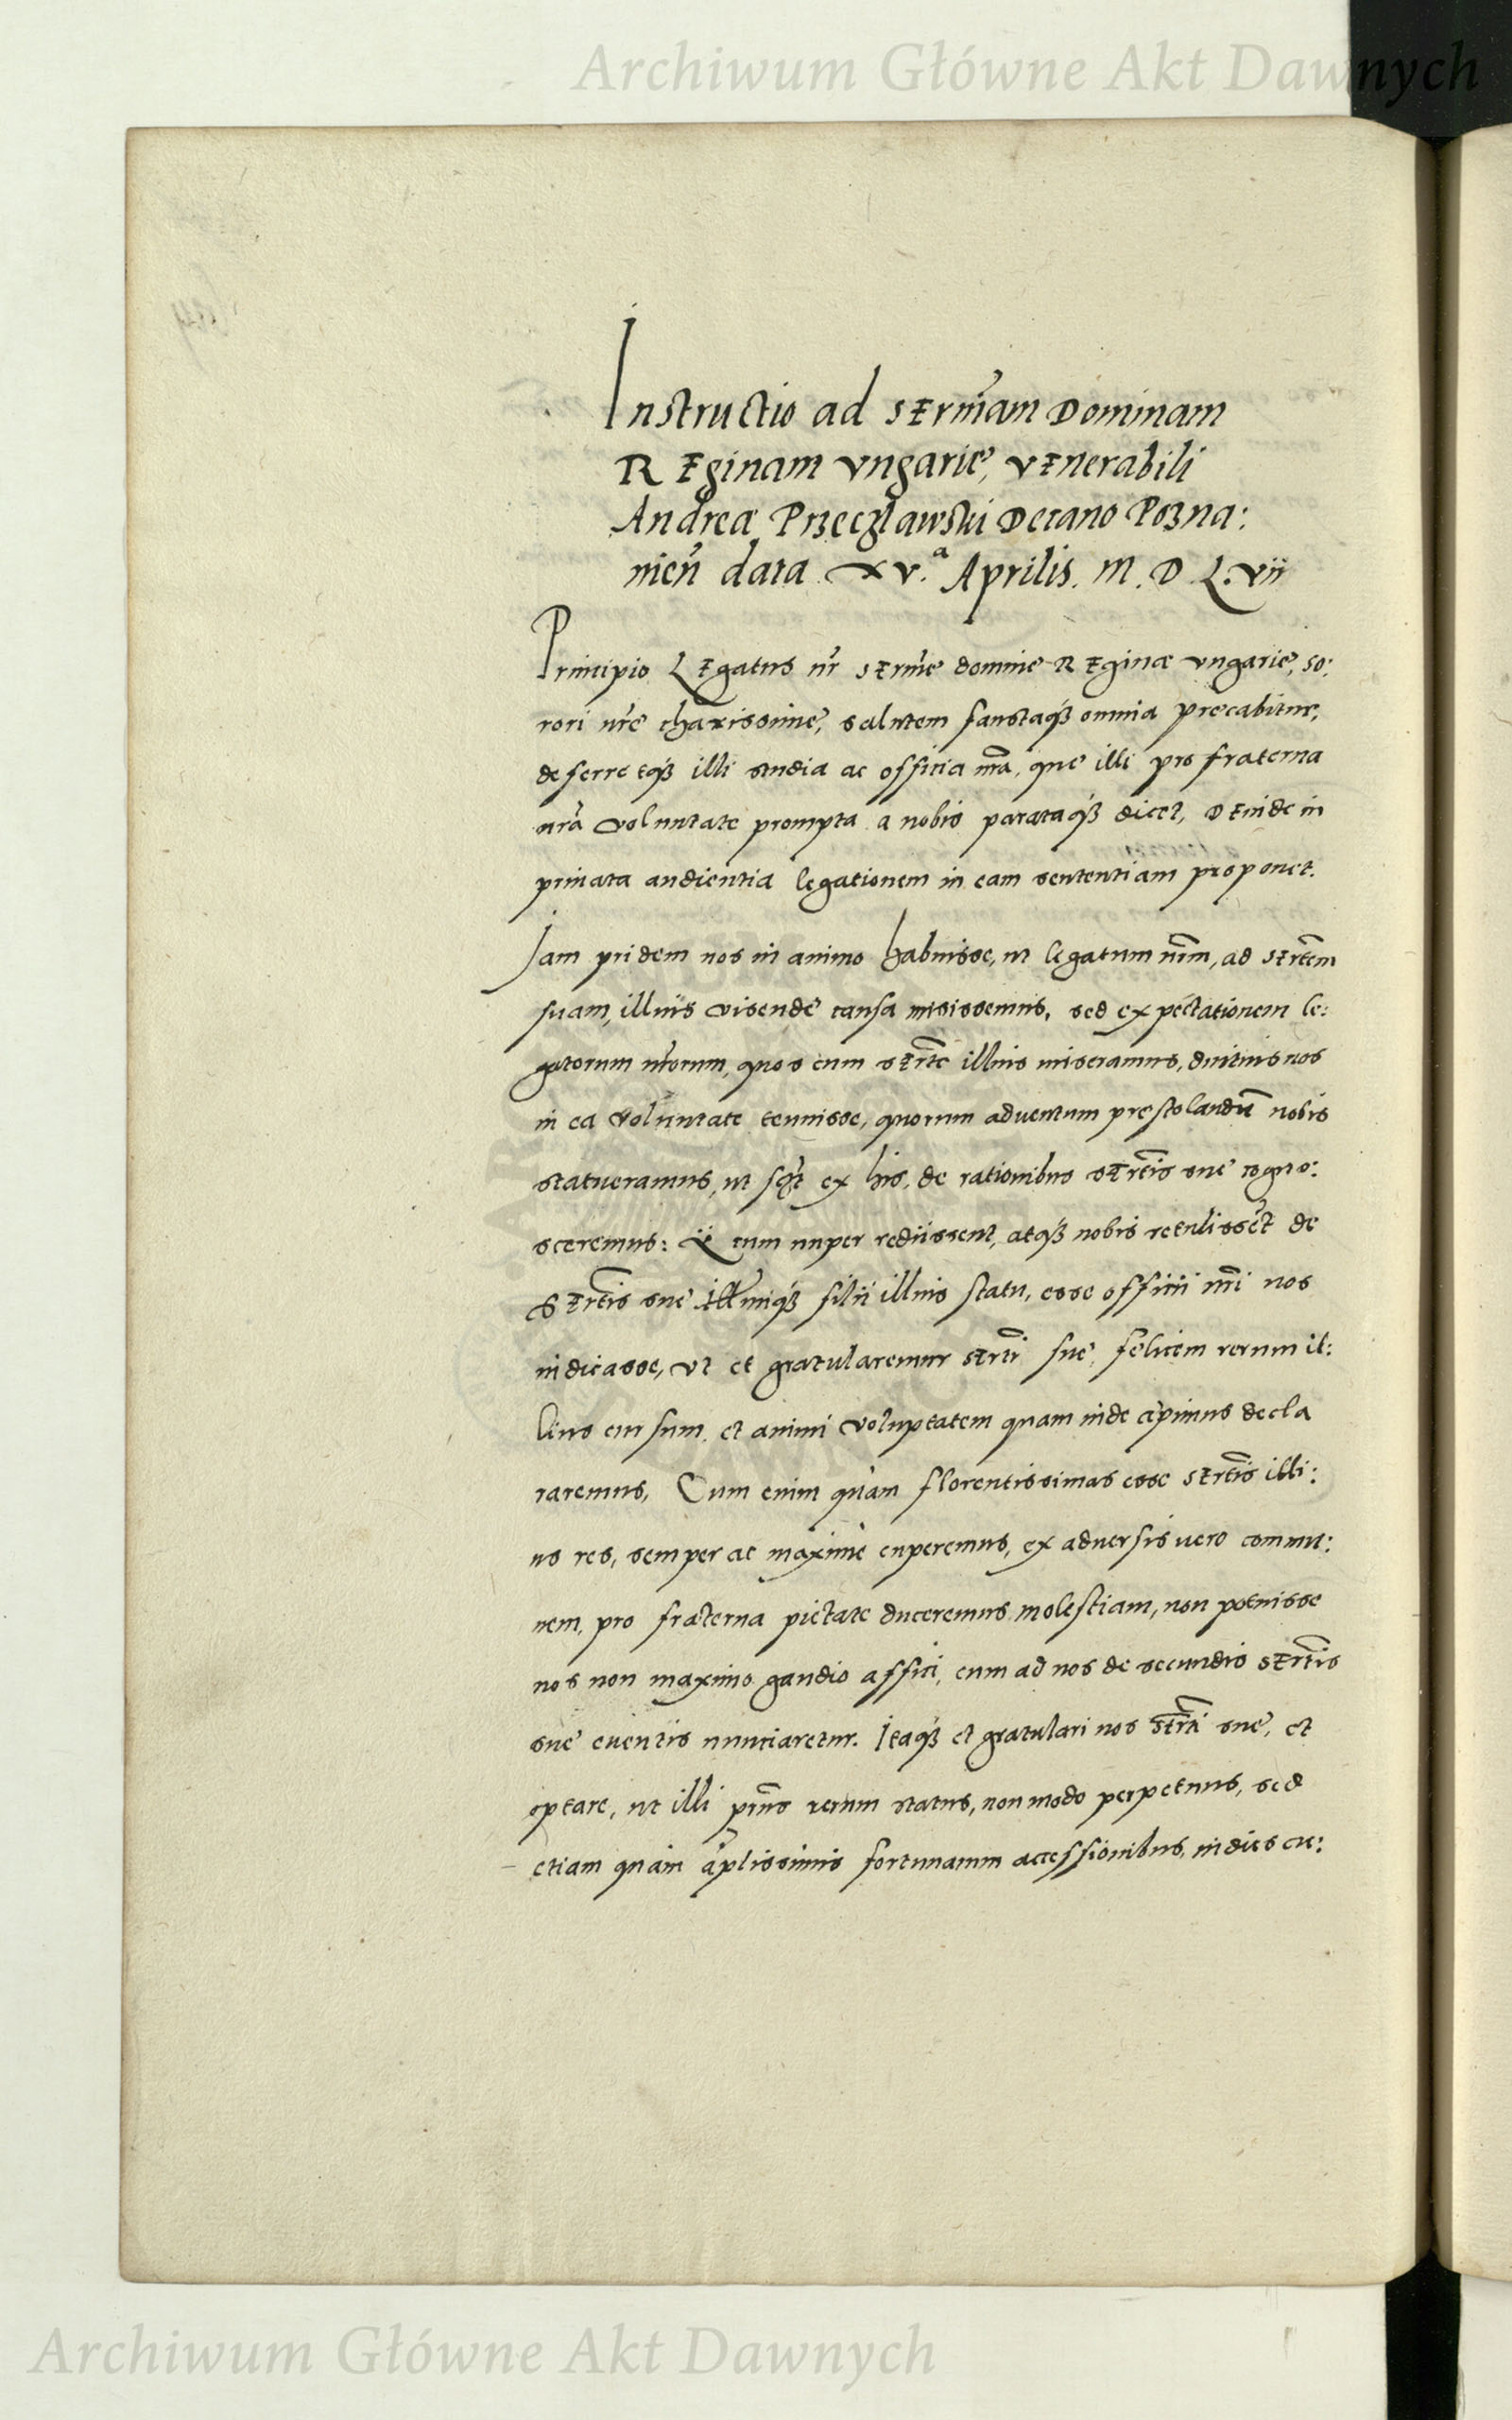 Archiwum Główne Akt Dawnych
Instructio ad sermãm Dominam
Reginam Vngarie, venerabili
Andreæ Przeczlawski Decano Pozna:
nieñ data xv.ª Aprilis. M. D. L. vii
Principio Legatus nr̃ sermẽ domine Reginæ Vngarie, so:
rori nrẽ charissime, salutem faustaqʒ omnia precabitur,
deferretqʒ illi studia ac officia nr̃a, que illi pro fraterna
nr̃a voluntate prompta a nobis parataqʒ dicet, Deinde in
priuata audientia legationem in eam sententiam proponet.
Jam pridem nos in animo habuisse, ut legatum nr̃m, ad sertẽm
suam, illius visende causa misissemus, sed expectationem le:
gatorum nr̃orum, quos cum sertẽ illius miseramus, diutius nos
in ea voluntate tenuisse, quorum aduentum prestolandũ nobis
statueramus, ut ex his, de rationibus sertĩs sue cogno:
sceremus: cum nuper rediissent, atqʒ nobis retulissẽt de
Sertĩs sue Illmiqʒ filii illius statu, esse officii nr̃i nos
indicasse, vt et gratularemur sertĩ sue, felicem rerum il:
lius cursum, et animi voluptatem quam inde cãpimus decla
raremus, Cum enim quàm florentissimas esse sertĩs illi:
us res, semper ac maxime cuperemus, ex aduersis uero commu:
nem, pro fraterna pietate duceremus molestiam, non potuisse
nos non maximo gaudio affici, cum ad nos de secundis sertĩs
sue euentis nunciaretur. Itaqʒ et gratulari nos sertĩ sue, et
optare, ut illi prñs rerum status, non modo perpetuus, sed
etiam quàm ãplissimis fortunarum accessionibus, indies cre:
Archiwum Główne Akt Dawnych